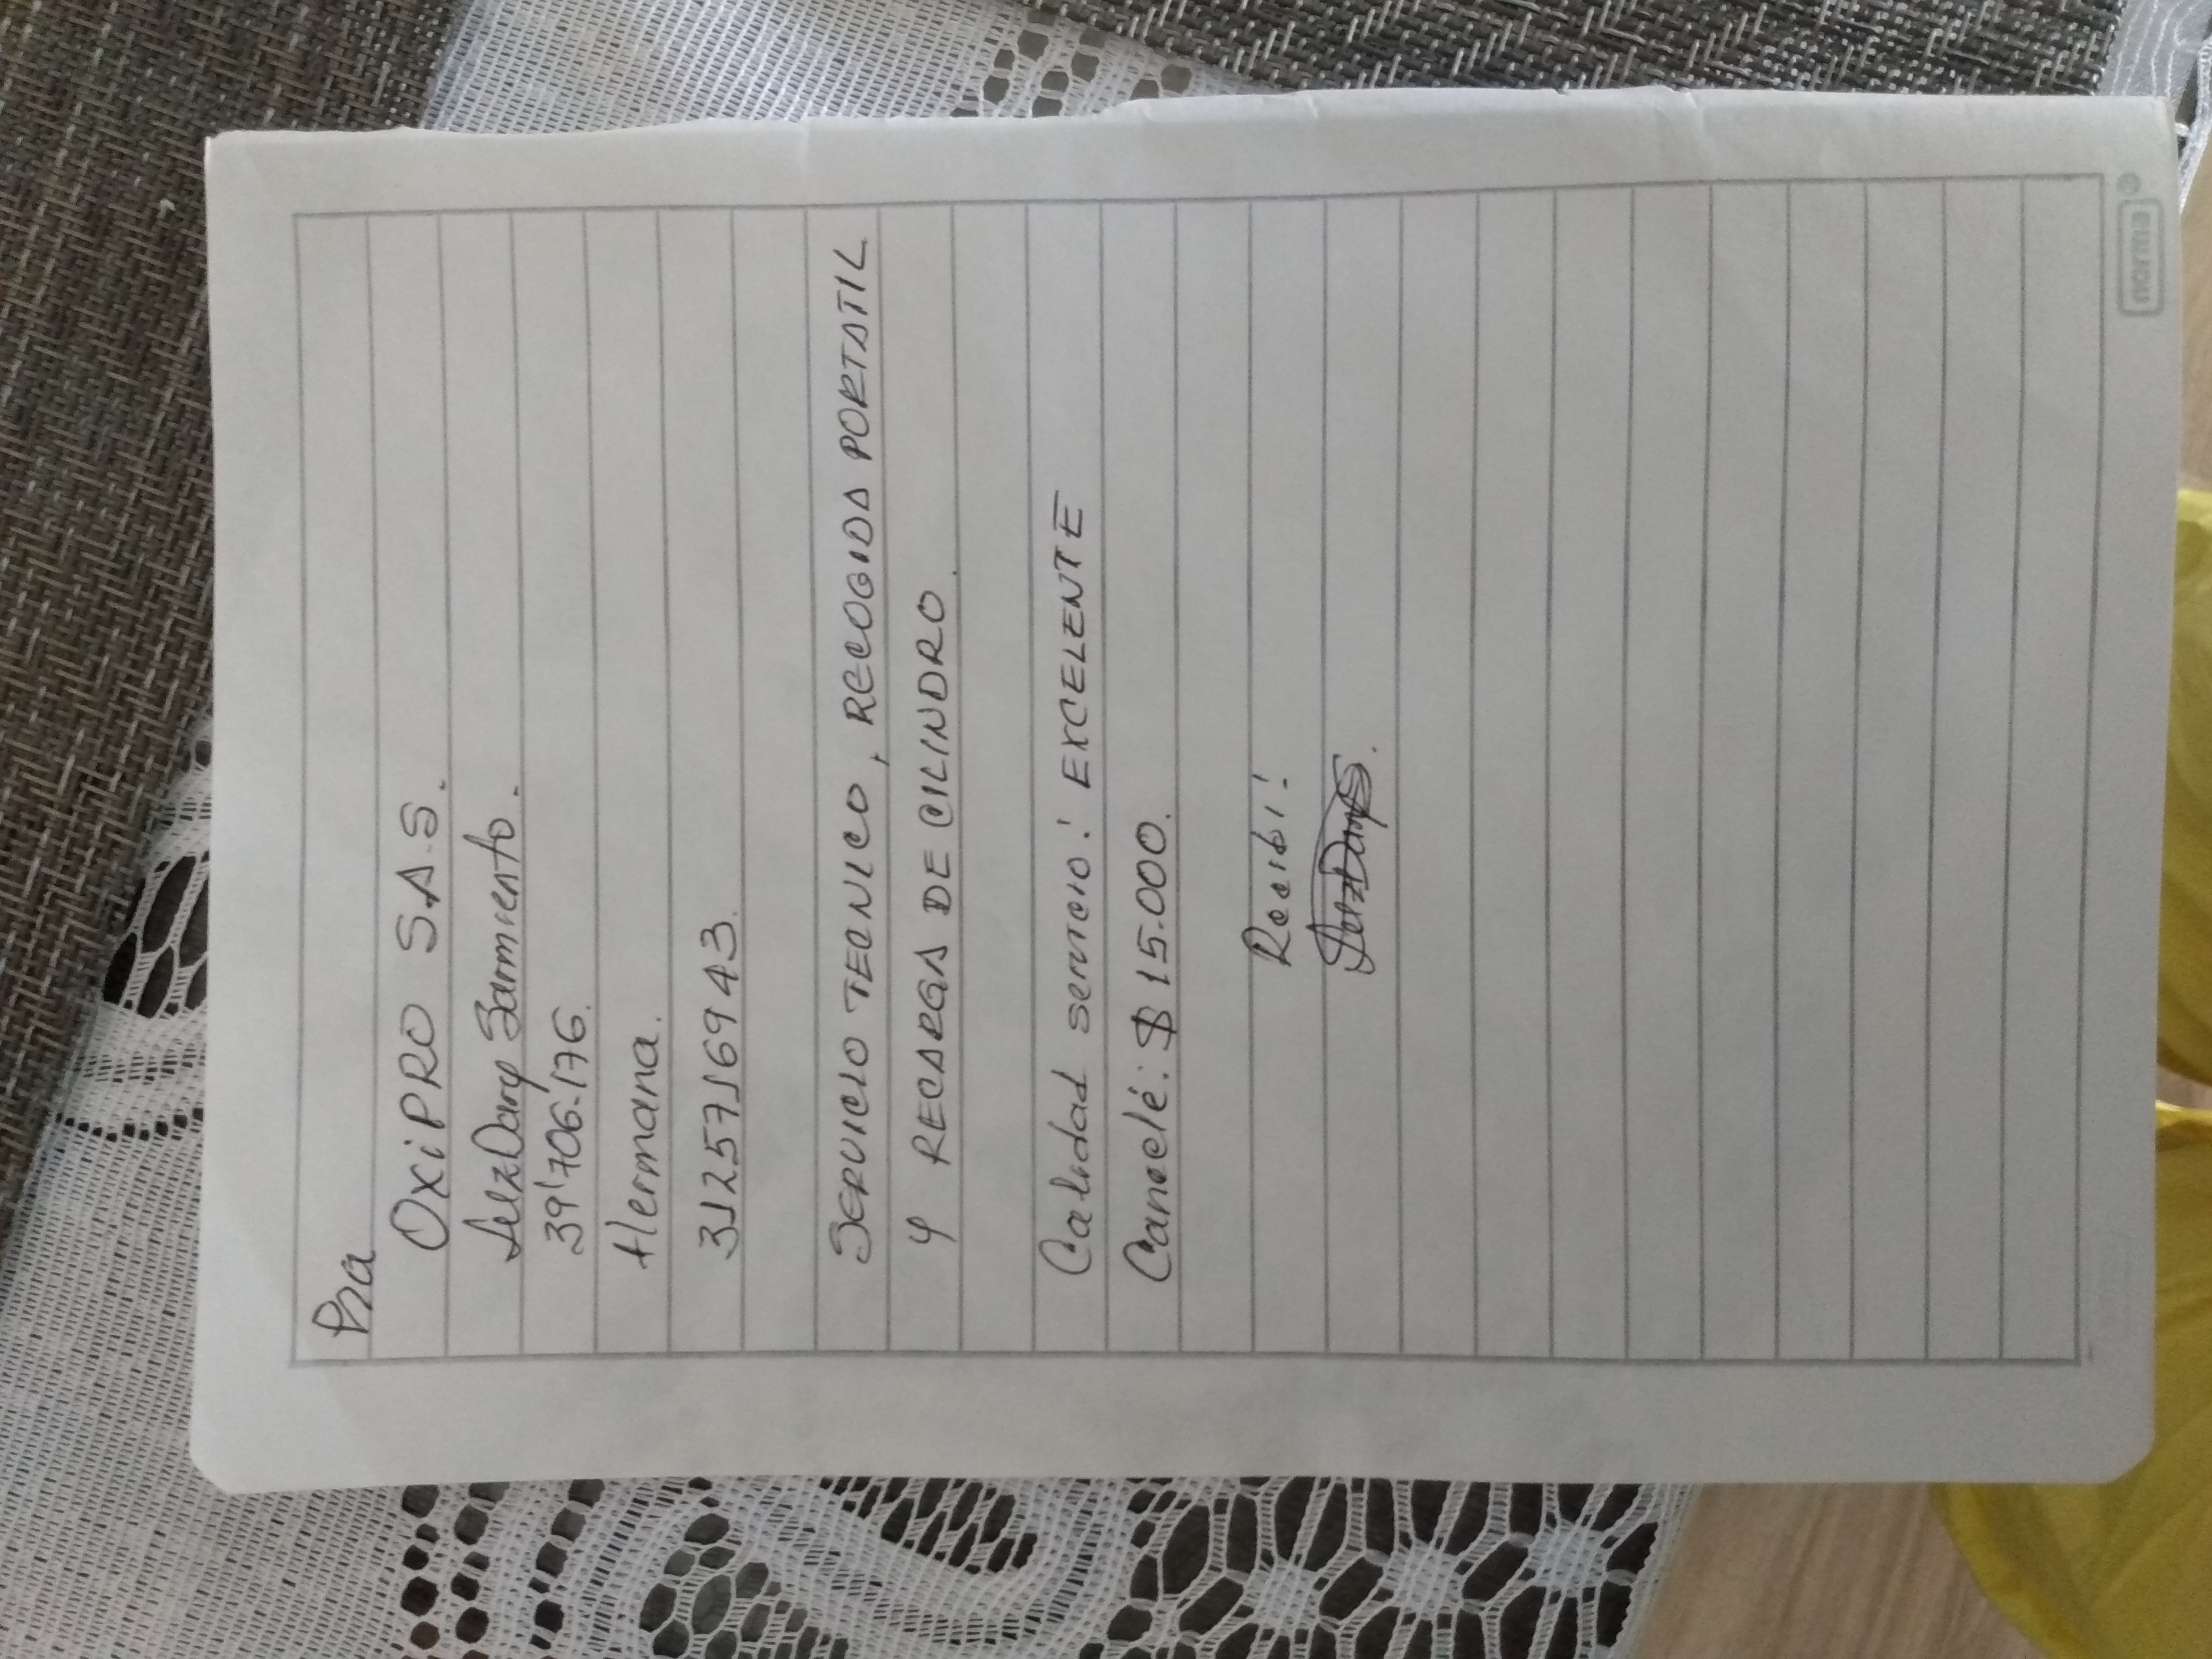 Pra
OXiPRO S.A.S.
LuzDary Sarmiento.
39'706.176.
Hermana.
3125716943.
SERVICIO TECNICO, RECOGIDA PORTATIL
Y RECARGA DE CILINDRO.
Calidad servicio: EXCELENTE
Cancelé: $ 15.000.
Recibí:
LuzDaryS.
norma®